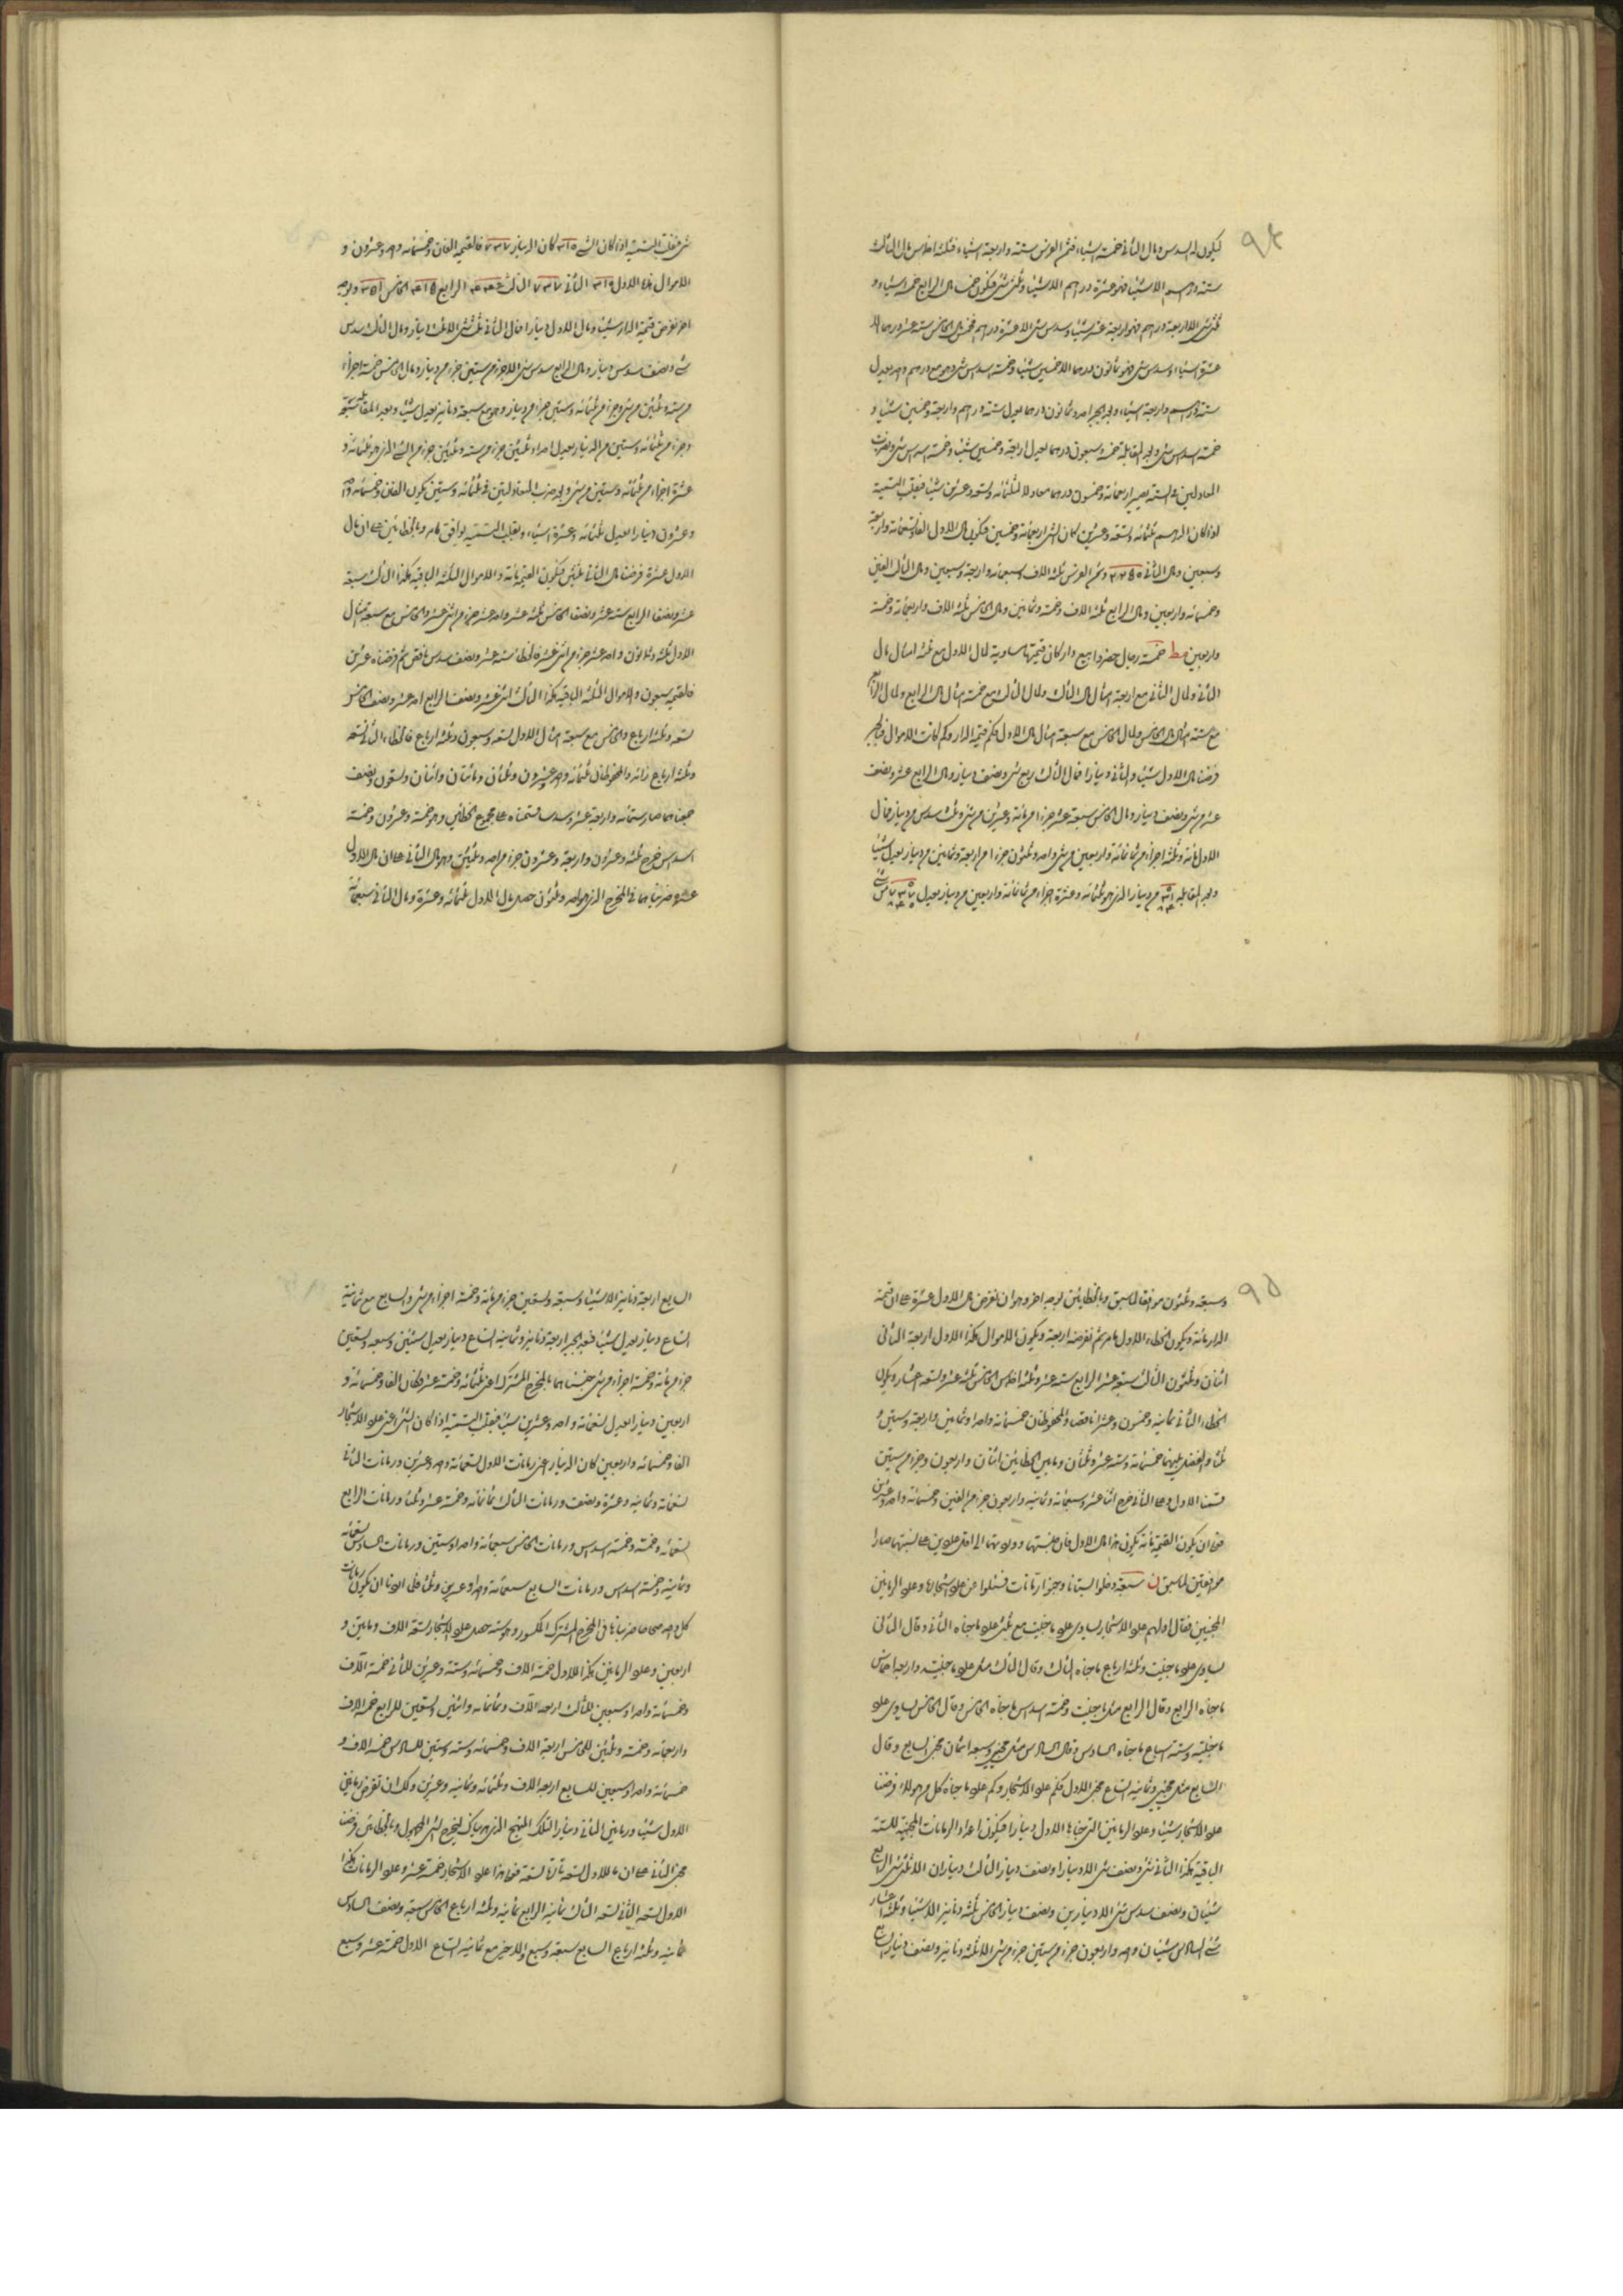 ٩٤
ليكون له السدس ومال الثاني خمسة اشياء فثمن الفرس ستة واربعة اشياء فثلثة اخماس مال الثالث
ستة دراهم الا شيئا فهو عشرة دراهم الا شيئا وثلثي شئ فيكون خمسا مال الرابع خمسة اشياء و
ثلثي شئ الا اربعة دراهم فهو اربعة عشر شيئا وسدس شئ الا عشرة دراهم فخمس مال الخامس ستة عشر درهما الا
عشرة اشياء وسدس شئ فهو ثمانون درهما الا خمسين شيئا وخمسة اسداس شئ وهو مع درهم واحد يعدل
ستة دراهم واربعة اشياء وبعد الجبر احد وثمانون درهما يعدل ستة دراهم واربعة وخمسين شيئا و
خمسة اسداس شئ وبعد المقابلة خمسة وسبعون درهما يعدل اربعة وخمسين شيئا وخمسة اسداس شئ وبضرب
المعادلين في الستة يصير اربعمائة وخمسون درهما معادلا لثلثمائة وتسعة وعشرين شيئا فبقلب التسمية
اذا كان الدرهم ثلثمائة وتسعة وعشرين كان الشئ اربعمائة وخمسين فيكون مال الاول الفا وتسعمائة واربعة
وسبعين ومال الثاني ٢٢٥٠ وثمن الفرس ثلثة الاف وسبعمائة واربعة وسبعين ومال الثالث الفين
وخمسمائة واربعين ومال الرابع ثلثة الاف وخمسة وثمانين ومال الخامس ثلثة الاف واربعمائة وخمسة
واربعين مط خمسة رجال حضروا لبيع دار كان قيمتها مساوية لمال الاول مع ثلثة امثال مال
الثاني ولمال الثاني مع اربعة امثال مال الثالث ولمال الثالث مع خمسة امثال مال الرابع ولمال الرابع
مع ستة امثال مال الخامس ولمال الخامس مع سبعة امثال مال الاول فكم قيمة الدار وكم كانت الاموال فبالجبر
فرضنا مال الاول شيئا والثاني دينارا فمال الثالث ربع شئ ونصف دينار ومال الرابع عشر ونصف
عشر شئ ونصف دينار ومال الخامس سبعة عشر جزءا من مائة وعشرين من شئ وثلث سدس من دينار فمال
الاول مائة وثلثة اجزاء من ثمانمائة واربعين من شئ واحد وثلثون جزءا من اربعة وثمانين من دينار يعدل شيئا
وبعد المقابلة من دينار الذي هو ثلثمائة وعشرة اجزاء من ثمانمائة واربعين من دينار يعدل من شئ
شئ فبقلب التسمية اذا كان الشئ كان الدينار فالقيمة الفان وخمسمائة واحد وعشرون و
الاموال هذا الاول الثاني الثالث الرابع الخامس وبوجه
اخر نفرض قيمة الدار شيئا ومال الاول دينارا فمال الثاني ثلث شئ الا ثلث دينار ومال الثالث سدس
شئ ونصف سدس دينار ومال الرابع سدس شئ الا جزء من ستين جزء من دينار ومال الخامس خمسة اجزاء
من ستة وثلثين من شئ وجزء من ثلثمائة وستين جزءا من دينار وهو مع سبعة دنانير يعدل شيئا وبعد المقابلة سبعة
وجزء من ثلثمائة وستين من الدينار يعدل احدا وثلثين جزء من ستة وثلثين جزء من الشئ الذي هو ثلثمائة و
عشرة اجزاء من ثلثمائة وستين من شئ وبعد ضرب المتعادلين في ثلثمائة وستين يكون الفان وخمسمائة واحد
وعشرون دينارا يعدل ثلثمائة وعشرة اشياء وبقلب التسمية يوافق ما مر وبالخطائين على ان مال
الاول عشرة فرضنا مال الثاني ثلثين فيكون القيمة مائة والاموال الثلثة الباقية هكذا الثالث سبعة
عشر ونصفا الرابع ستة عشر ونصفا الخامس ثلثة عشر واحد عشر جزء من اثني عشر والخامس مع سبعة امثال
الاول ثلثة وثمانون واحد عشر جزء من اثني عشر فالخطاء ستة عشر ونصف سدس ناقص ثم فرضناه عشرين
فالقيمة سبعون والاموال الثلثة الباقية هكذا الثالث اثنى عشر ونصف الرابع احد عشر ونصف الخامس
تسعة وثلثة ارباع والخامس مع سبعة امثال الاول تسعة وسبعون وثلثة ارباع فالخطاء الثاني تسعة
وثلثة ارباع زائد والمحفوظان ثلثمائة واحد وعشرون وثلثان ومائتان واثنان وتسعون ونصف
جمعناهما صار ستمائة واربعة عشر وسدسا قسمناه على مجموع الخطائين وهو خمسة وعشرون وخمسة
اسداس خرج ثلثة وعشرون واربعة وعشرون جزء من احد وثلثين وهو مال الثاني على ان مال الاول
عشرة ضربناهما في المخرج الذي هو احد وثلثون حصل مال الاول ثلثمائة وعشرة ومال الثاني سبعمائة
٩٥
وسبعة وثلثون موافقا لما سبق وبالخطائين بوجه اخر وهو ان نفرض مال الاول عشرة على ان قيمة
الدار مائة ويكون الخطاء الاول ما مر ثم نفرضه اربعة ويكون الاموال هكذا الاول اربعة الثاني
اثنان وثلثون الثالث سبعة عشر الرابع ستة عشر وثلثة اخماس الخامس ثلثة عشر وتسعة اعشار ويكون
الخطاء الثاني ثمانية وخمسون وعشرا ناقصا والمحفوظان خمسمائة واحد وثمانين واربعة وستين و
ثلثا والفضل بينهما خمسمائة وستة عشر وثلثان وما بين الخطائين اثنان واربعون وجزء من ستين
قسمنا الاول على الثاني خرج اثنا عشر وسبعمائة وثمانية واربعون جزء من الفين وخمسمائة واحد وعشرين
فعلى ان يكون القيمة مائة يكون هذا مال الاول فان جنستها وردتهما الى اقل عددين على نسبتهما صارا
موافقين لما سبق ن سبعة دخلوا البستانا وجنوا رمانات فسئلوا عن عدد اشجارها وعدد الرمانين
المجنيين فقال اولهم عدد الاشجار يساوى عدد ما جنيت مع ثلثى عدد ما جناه الثاني وقال الثاني
يساوى عدد ما جنيت وثلثة ارباع ما جناه الثالث وقال الثالث مثل عدد ما جنيت واربعة اخماس
ما جناه الرابع وقال الرابع مثل ما جنيت وخمسة اسداس ما جناه الخامس وقال الخامس يساوى عدد
ما جنيته وستة اسباع ما جناه السادس وقال السادس مثل مجنيى وسبعة اثمان مجنى السابع وقال
السابع مثل مجنيى وثمانية اتساع مجنى الاول فكم عدد الاشجار وكم عدد ما جناه كل من هؤلاء فرضنا
عدد الاشجار شيئا وعدد الرمانين التي جناها الاول دينارا فيكون اعداد الرمانات المجنية للستة
الباقية هكذا الثاني شئ ونصف شئ الا دينارا ونصف دينار الثالث ديناران الا ثلثى شئ الرابع
شيئان ونصف سدس شئ الا دينارين ونصف دينار الخامس ثلثة دنانير الا شيئا وثلثة اعشار
شئ السادس شيئان واحد واربعون جزء من ستين جزء من شئ الا ثلثة دنانير ونصف دينار السابع
السابع اربعة دنانير الا شيئا وسبعة وتسعين جزء من مائة وخمسة اجزاء من شئ والسابع مع ثمانية
اتساع دينار يعدل شيئا فبعد الجبر اربعة دنانير وثمانية اتساع دينار يعدل شيئين وسبعة وتسعين
جزء من مائة وخمسة اجزاء من شئ جنسناهما بالمخرج المشترك اعنى ثلثمائة وخمسة عشر فكان الفا وخمسمائة و
اربعين دينارا يعدل تسعمائة واحد وعشرين شيئا فبقلب التسمية اذا كان الشئ اعنى عدد الاشجار
الفا وخمسمائة واربعين كان الدينار اعنى رمانات الاول تسعمائة واحد وعشرين ورمانات الثاني
تسعمائة وثمانية وعشرة ونصف ورمانات الثالث ثمانمائة وخمسة عشر وثلثا ورمانات الرابع
تسعمائة وخمسة وخمسة اسداس ورمانات الخامس سبعمائة واحدا وستين ورمانات السادس تسعمائة
وثمانية وخمسة اسداس ورمانات السابع سبعمائة واحدا وعشرين وثلثا فلما اردنا ان يكون رمانات
كل واحد صحاحا ضربناها في المخرج المشترك للكسور وهو ستة حصل عدد الاشجار تسعة الاف ومائتين و
اربعين وعدد الرمانين هكذا للاول خمسة الاف وخمسمائة وستة وعشرين للثاني خمسة آلاف
وخمسمائة واحدا وسبعين للثالث اربعة آلاف وثمانمائة واثنين وتسعين للرابع خمسة الاف
واربعمائة وخمسة وثلثين للخامس اربعة الاف وخمسمائة وستة وستين للسادس خمسة الاف و
خمسمائة واحدا وسبعين للسابع اربعة الاف وثلثمائة وثمانية وعشرين ولك ان تفرض رمانين
الاول شيئا ورمانين الثاني دينارا لتسلك المنهج الذي هديناك ليخرج لك المجهول وبالخطائين فرضنا
مجنى الثاني على ان ما للاول تسعة تارة تسعة فعلى هذا عدد الاشجار خمسة عشر وعدد الرمانات هكذا
الاول تسعة الثاني تسعة الثالث ثمانية الرابع ثمانية وثلثة ارباع الخامس سبعة ونصف السادس
ثمانية وثلثة ارباع السابع سبعة وسبع والاخير مع ثمانية اتساع الاول خمسة عشر وسبع